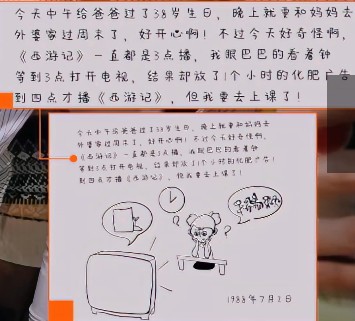 今天中午给爸爸过了38岁生日，晚上就要和妈妈去
外婆家过周末了，好开心啊！不过今天好奇怪啊，
《西游记》一直都是3点播，我眼巴巴的看着钟
等到3点打开电视，结果却放了1个小时的化肥广告
到四点才播《西游记》，但我要去上课了！
今天中午给爸爸过了38岁生日，晚上就要和妈妈去
外婆家过周末了，好开心啊！不过今天好奇怪啊，
《西游记》一直都是3点播，我眼巴巴的看着钟
等到3点打开电视，结果却放了1个小时的化肥广告！
到四点才播《西游记》，但我要去上课了！
1988年7月2日